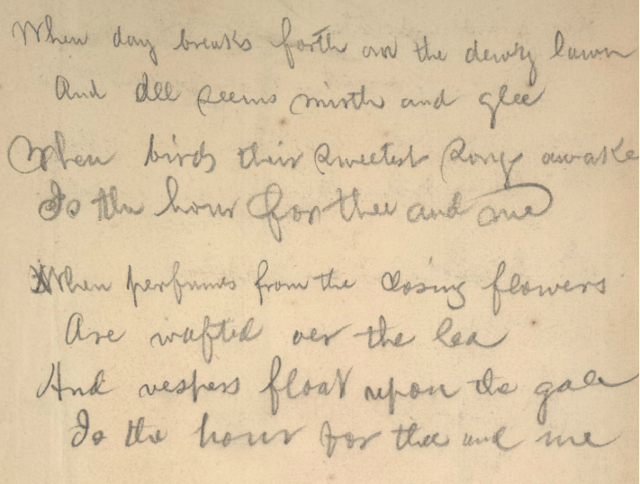 When day breaks forth on the dewy lawn
And All seems mirth and glee
When birds their sweetest songs awake
Is the hour for thee and me
When perfumes from the closing flowers
Are wafted oer the lea
And vespers float upon the gale
Is the hour for thee and me